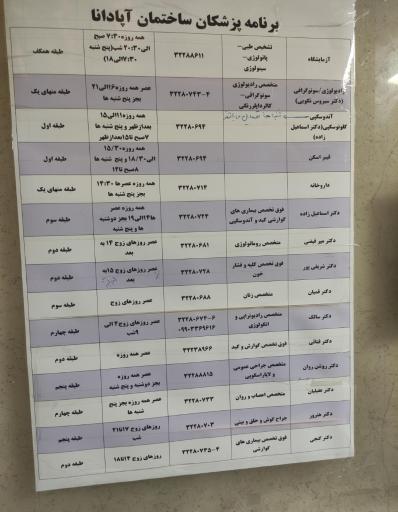 برنامه پزشکان ساختمان آپادانا
آزمایشگاه
تشخیص طبی-
پاتولوژی-
سیتولوژی
۳۲۲۸۸۶۱۱
همه روزه ۷:۳۰ صبح
الی ۲۰:۳۰ شب(پنج شنبه
۷:۳۰الی۱۸)
طبقه همکف
رادیولوژی/سونوگرافی
(دکتر سیروس نکویی)
متخصص رادیولوژی
سونوگرافی-
کالرداپلررنگی
۳۲۲۸۰۷۴۳-۴
عصر همه روزه۱۶الی۲۱
بجز پنج شنبه ها
طبقه منهای یک
آندوسکپی
کلونوسکپی(دکتر اسماعیل
زاده)
۳۲۲۸۰۶۹۴
همه روزه۱۱الی۱۵
بعدازظهر و پنج شنبه ها
۷صبح تا۱۵بعدازظهر
طبقه اول
فیبر اسکن
۳۲۲۸۰۶۹۴
همه روزه ۱۵/۳۰
الی ۱۸/۳۰ و پنج شنبه ها
۸صبح تا۱۲
طبقه اول
داروخانه
۳۲۲۸۰۷۱۴
همه روزه عصرها ۱۴:۳۰
بجز پنج شنبه ها
طبقه منهای یک
دکتر اسماعیل زاده
فوق تخصص بیماری های
گوارشی کبد و آندوسکپی
۳۲۲۸۰۷۲۴
همه روزه عصر
ها۱۴الی۱۹ بجز دوشنبه
ها و پنج شنبه
طبقه سوم
دکتر میر فیضی
متخصص روماتولوژی
۳۲۲۸۰۶۸۱
عصر روزهای زوج ۱۴ به
بعد
طبقه دوم
دکتر شریفی پور
فوق تخصص کلیه و فشار
خون
۳۲۲۸۰۷۲۸
عصر روزهای زوج ۱۵به
بعد
طبقه دوم
متخصص زنان
۳۲۲۸۰۶۸۸
عصر روزهای زوج
طبقه سوم
دکتر سالک
متخصص رادیوتراپی و
انکولوژی
۳۲۲۸۰۶۷۴-۶
۰۹۹۰۳۳۶۹۶۱۶
عصر روزهای زوج۴ الی
۹شب
طبقه چهارم
فوق تخصص گوارش و کبد
۳۲۲۳۸۹۶۶
عصر همه روزه
طبقه دوم
دکتر روشن روان
متخصص جراحی عمومی
و لاپاراسکوپی
۳۲۲۸۸۸۱۵
عصر همه روزه
بجز دوشنبه و پنج شنبه
طبقه پنجم
دکتر عقیلیان
متخصص اعصاب و روان
۳۲۲۸۰۷۳۳
عصر همه روزه بجز پنج
شنبه ها
طبقه چهارم
دکتر هنرور
جراح گوش و حلق و بینی
۳۲۲۸۰۷۰۳
روزهای زوج ۱۷تا۲۱
شب
طبقه پنجم
دکتر گنجی
فوق تخصص بیماری های
گوارشی
۳۲۲۸۰۷۳۵-۴
روزهای زوج ۱۴تا۱۸
طبقه دوم